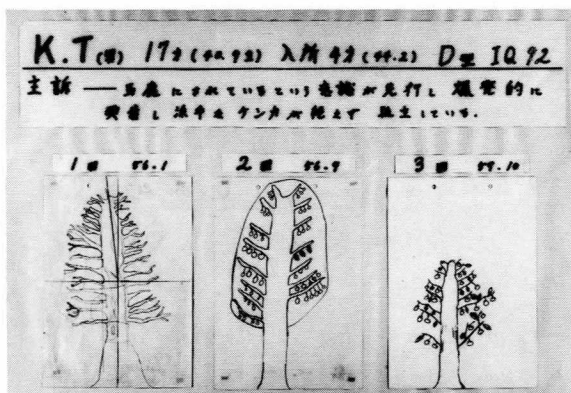 K.T(男) 17才(40.9生) 入所4才(44.2) D型 IQ 92
主訴 ── 馬鹿にされているという意識が先行し 爆発的に
興奮し 派手なケンカが絶えず 孤立している.
1回 56.1
2回 56.9
3回 57.10